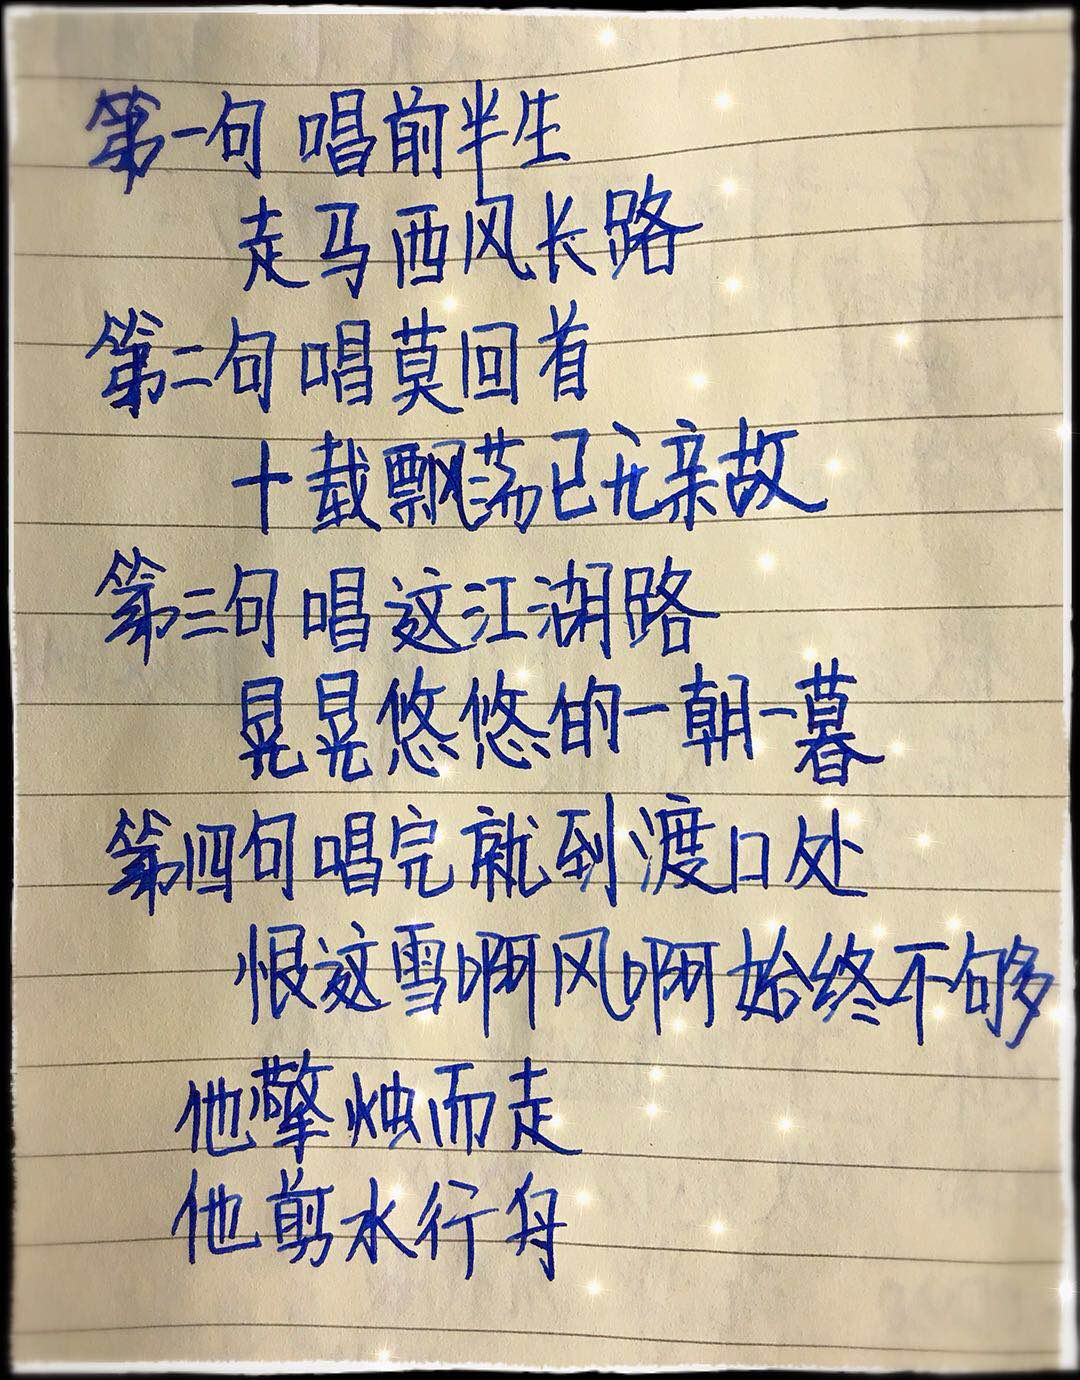 第一句 唱前半生
走马西风长路
第二句唱莫回首
十载飘荡已无亲故
第三句唱这江湖路
晃晃悠悠的一朝一暮
第四句唱完就到渡口处
恨这雪啊风啊始终不够
他擎烛而走
他剪水行舟